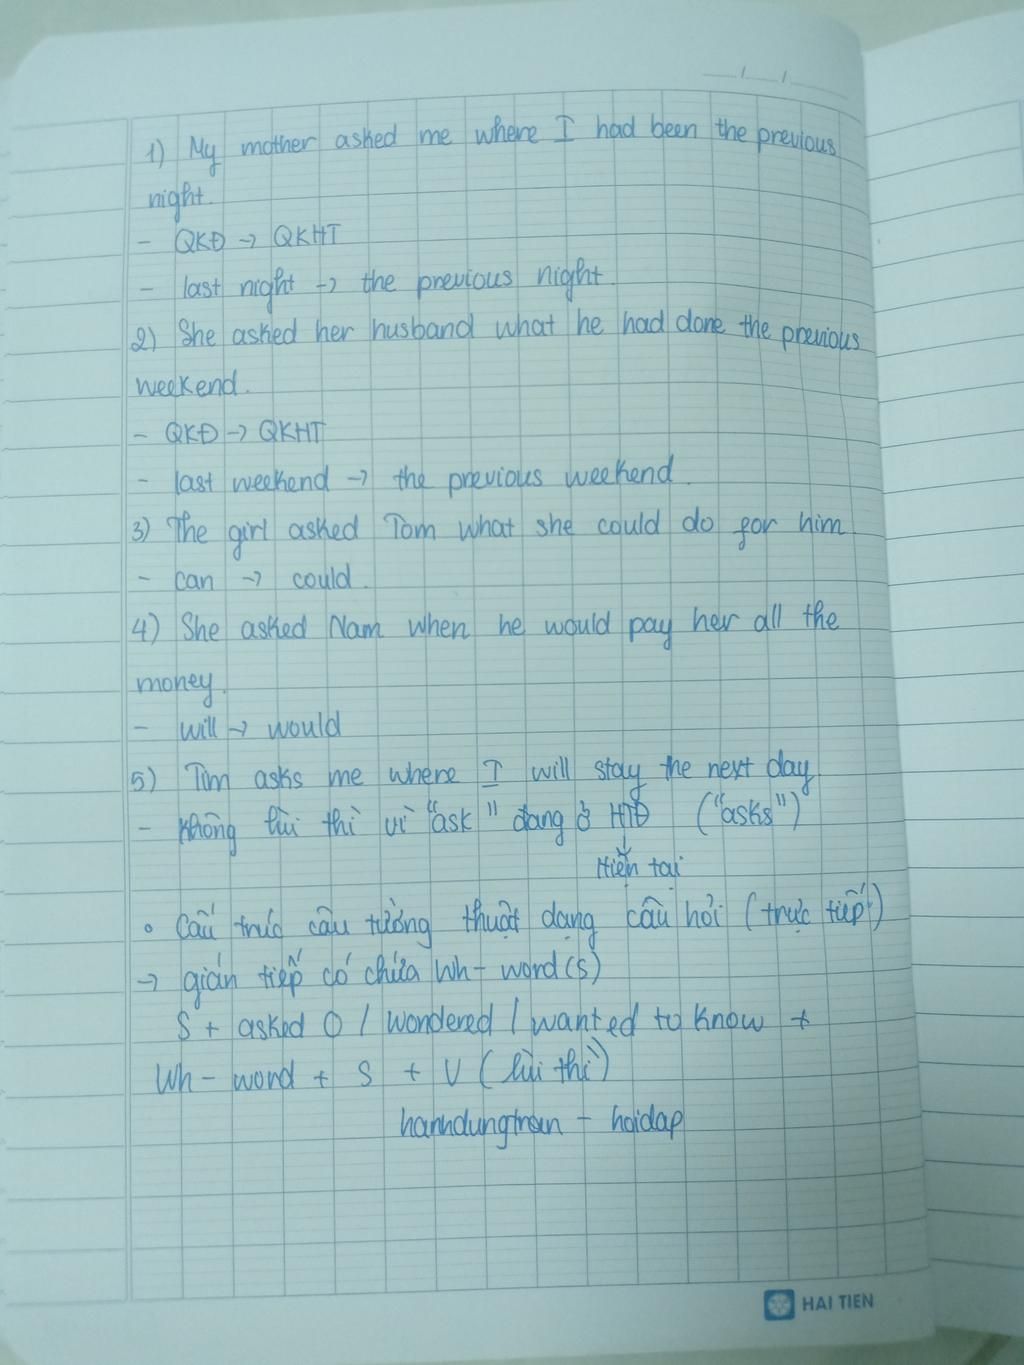 1) My mother asked me where I had been the previous
night.
- QKĐ → QKHT
- last night → the previous night.
2) She asked her husband what he had done the previous
weekend.
- QKĐ → QKHT
- last weekend → the previous weekend.
3) The girl asked Tom what she could do for him.
- can → could.
4) She asked Nam when he would pay her all the
money.
- will → would
5) Tim asks me where I will stay the next day
- Không lùi thì vì "ask" đang ở HTĐ ("asks")
Hiện tại
• Cấu trúc câu tường thuật dạng câu hỏi (trực tiếp)
→ gián tiếp có chứa Wh- word(s)
S + asked O / wondered / wanted to know +
Wh- word + S + V (lùi thì)
hanhdungtran - hoidap
HAI TIEN